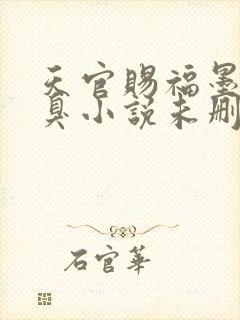 天官赐福墨
臭小说未删
石官華